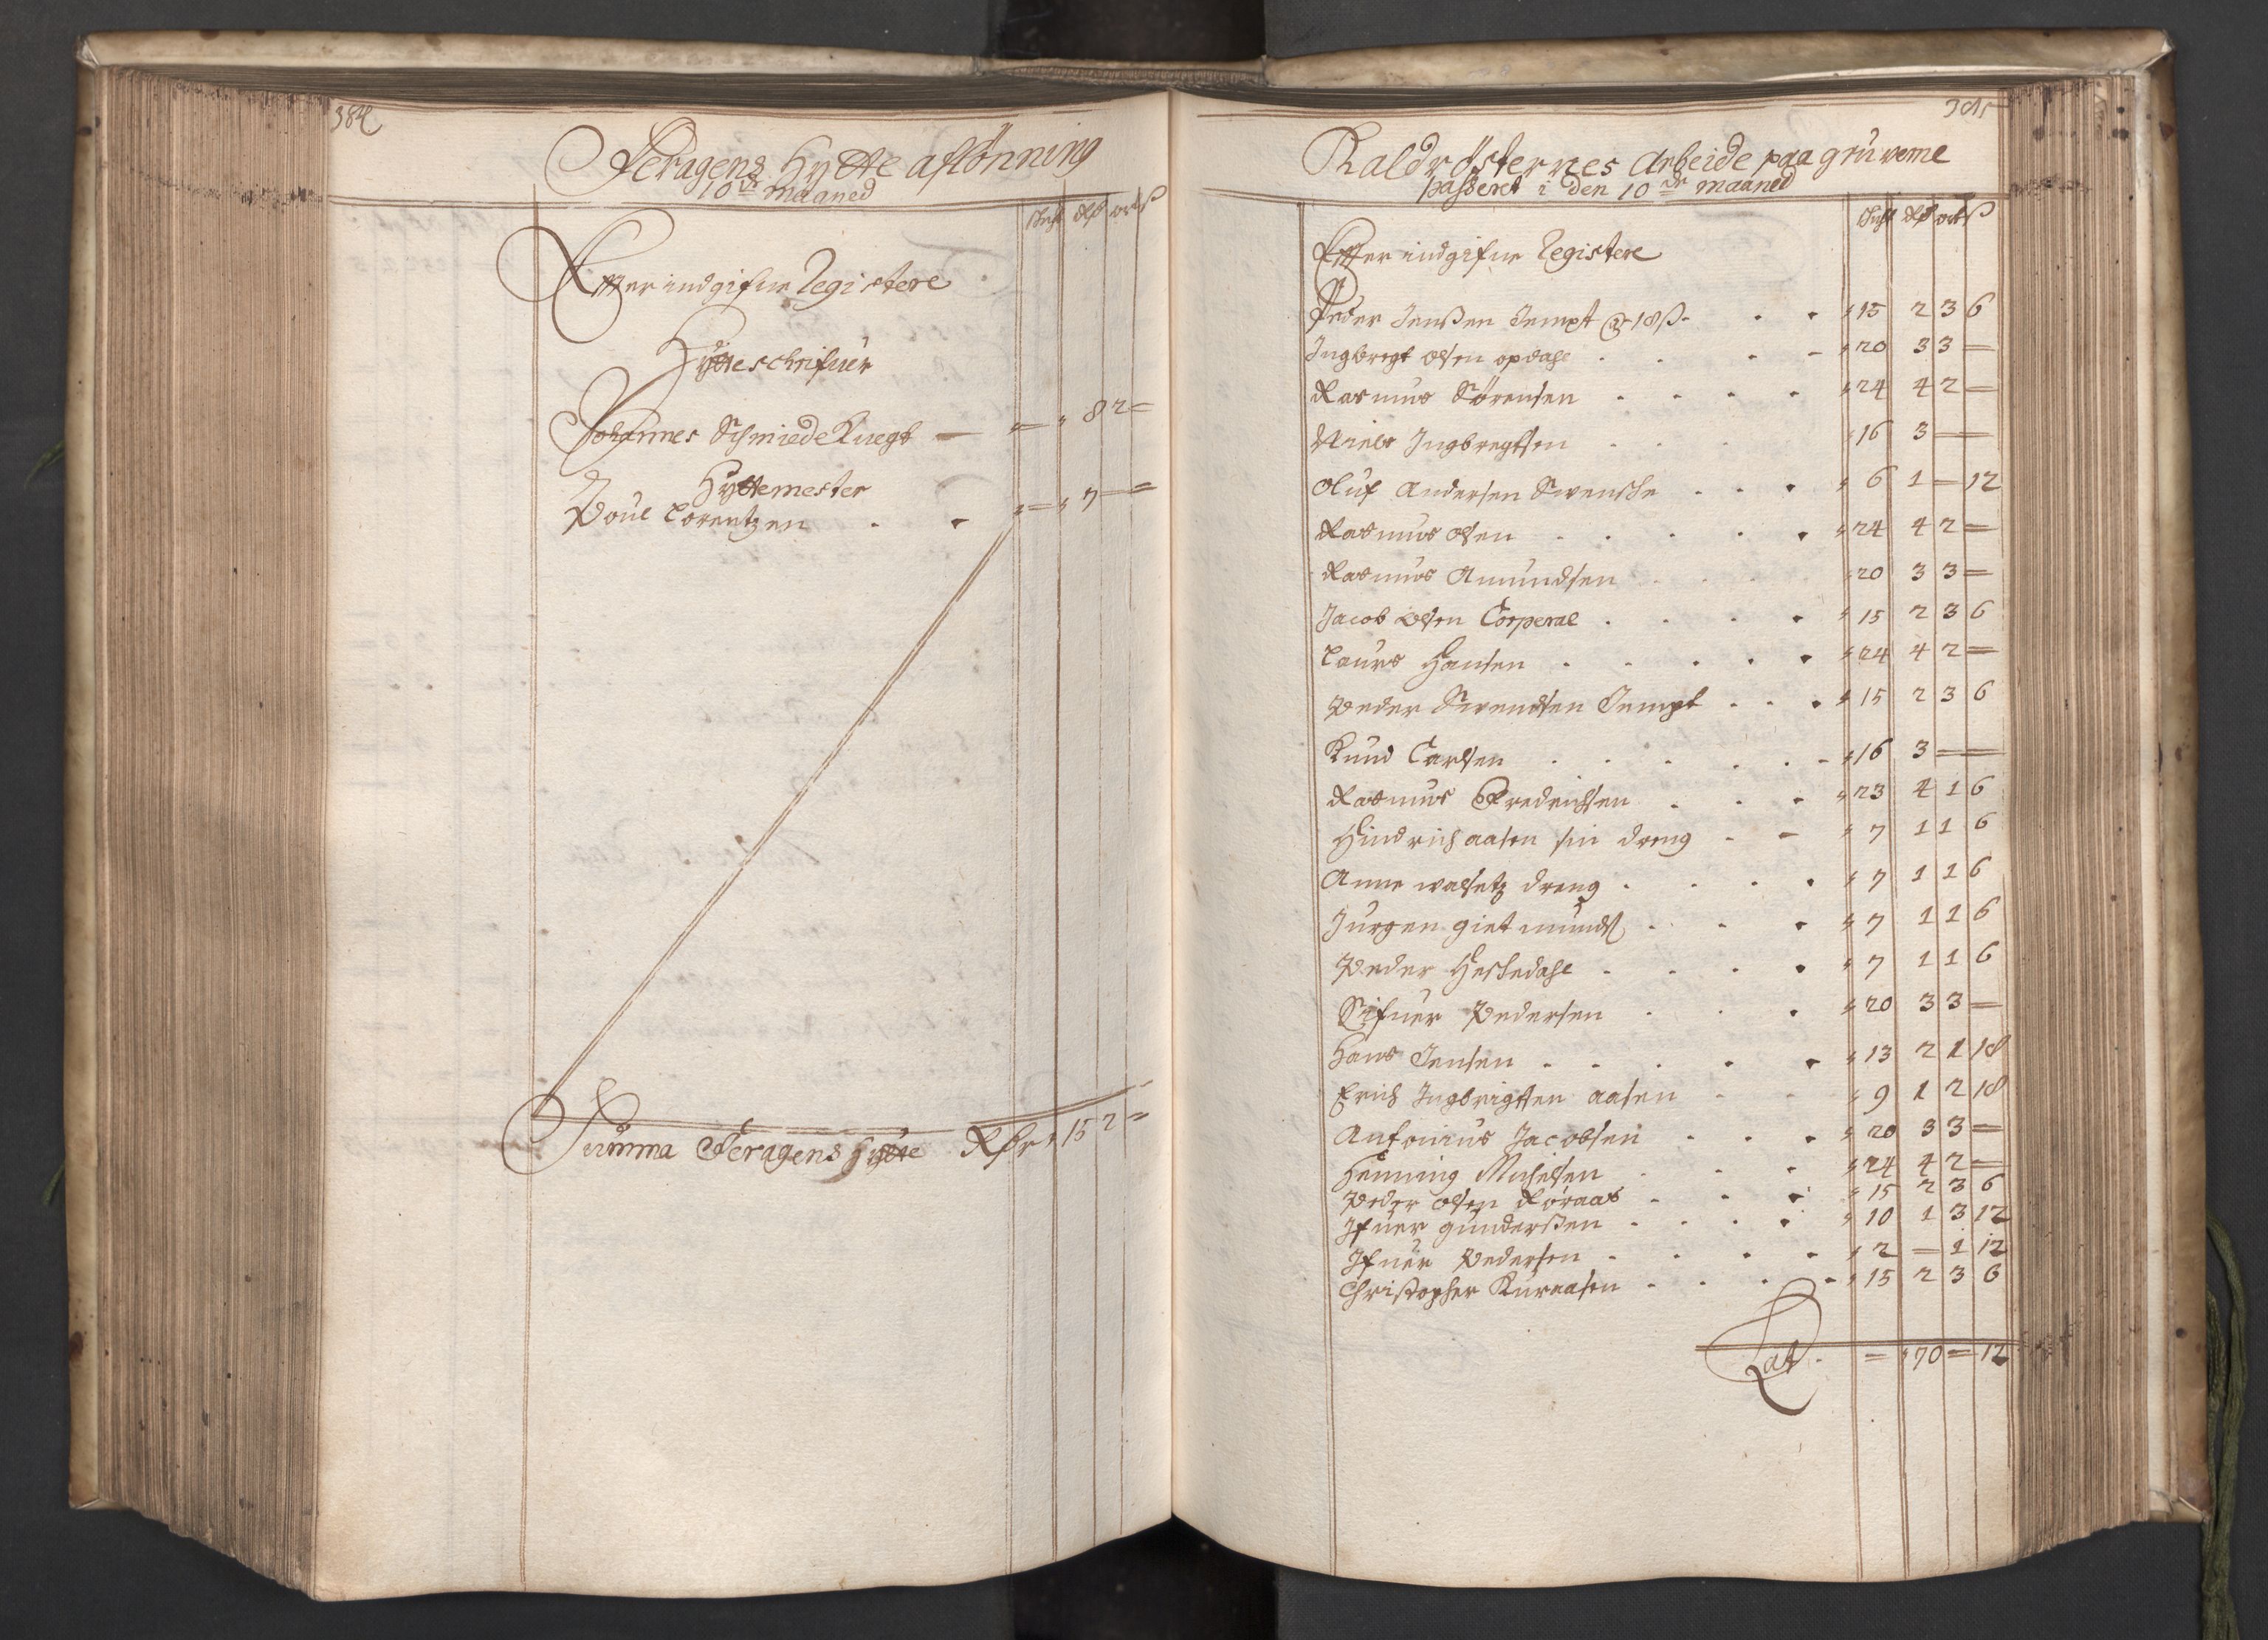 384
Feragens Hytte aflønning
10de maaned
Schifft Rdr ort ß
Effter indgifne Registere
Hytteschrifuer
Johannes Schmiede Knegt — = 8 2 =
Hyttemester
Poul Lorentzen = 7 — =
Summa Feragens Hytte Rdr 15 2 =
385
Kaldrösternes Arbeide paa gruverne
passeret i den 10de maaned
Schifft Rdr ort ß
Effter indgifne Registere
Peder Jenßen Jempt @ 18 ß 15 2 3 6
Ingbregt Olsen opdahl 20 3 3 —
Rasmus Sørensen 24 4 2 —
Niels Ingbregtsen 16 3 — —
Oluf Andersen Swenske 6 1 — 12
Rasmus Olsen 24 4 2 —
Rasmus Amundsen 20 3 3 —
Jacob Olsen Corperal 15 2 3 6
Laurs Hansen 24 4 2 —
Peder Swendsen Jempt 15 2 3 6
Knud Carlsen 16 3 — —
Rasmus Fredrichsen 23 4 1 6
Hindrich aasen sin dreng 7 1 1 6
Anne walsetz dreng 7 1 1 6
Jurgen gietmunds 7 1 1 6
Peder Heskedahl 7 1 1 6
Sifuer Pedersen 20 3 3 —
Hans Jensen 13 2 1 18
Erich Ingbrigtsen aasen 9 1 2 18
Antonius Jacobsen 20 3 3 —
Henning Michelsen 24 4 2 —
Peder Olsen Röraas 15 2 3 6
Ifuer gunderßen 10 1 3 12
Ifuer Pedersen 2 — 1 12
Christopher Kuraasen 15 2 3 6
Lat. = 70 = 12